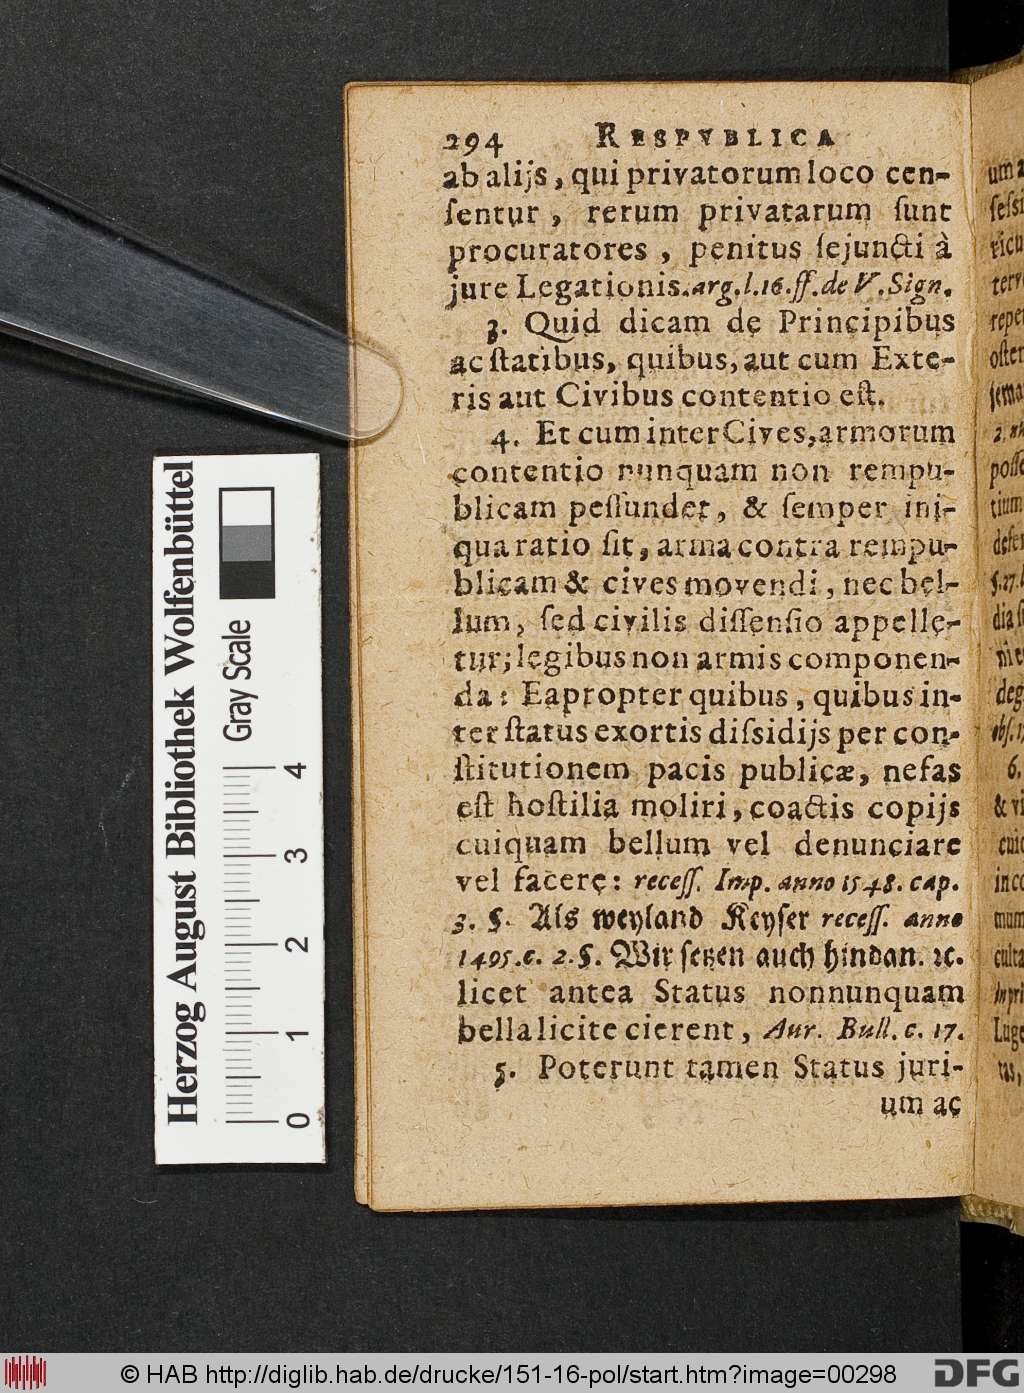 294 RESPVBLICA
ab alijs, qui privatorum loco cen-
ſentur, rerum privatarum ſunt
procuratores, penitus ſejuncti à
jure Legationis. arg. l. 16. ff. de V. Sign.
3. Quid dicam de Principibus
ac ſtatibus, quibus, aut cum Exte-
ris aut Civibus contentio eſt.
4. Et cum inter Cives, armorum
contentio nunquam non rempu-
blicam peſſundet, & ſemper ini-
qua ratio ſit, arma contra rempu-
blicam & cives movendi, nec bel-
lum, ſed civilis diſſenſio appelle-
tur; legibus non armis componen-
da: Eapropter quibus, quibus in-
ter ſtatus exortis diſsidijs per con-
ſtitutionem pacis publicæ, nefas
eſt hoſtilia moliri, coactis copijs
cuiquam bellum vel denunciare
vel facere: receſſ. Imp. anno 1548. cap.
3. §. Als weyland Keyſer receſſ. anno
1495. c. 2. §. Wir ſetzen auch hindan. ꝛc.
licet antea Status nonnunquam
bella licite cierent, Aur. Bull. c. 17.
5. Poterunt tamen Status juri-
um ac
um a
ticu
repe
oſten
poſſ
tium
dia ſ
deg
6.
& vi
inco
mum
culta
Luge
tas,
Herzog August Bibliothek Wolfenbüttel
Gray Scale
0 1 2 3 4
© HAB http://diglib.hab.de/drucke/151-16-pol/start.htm?image=00298
DFG